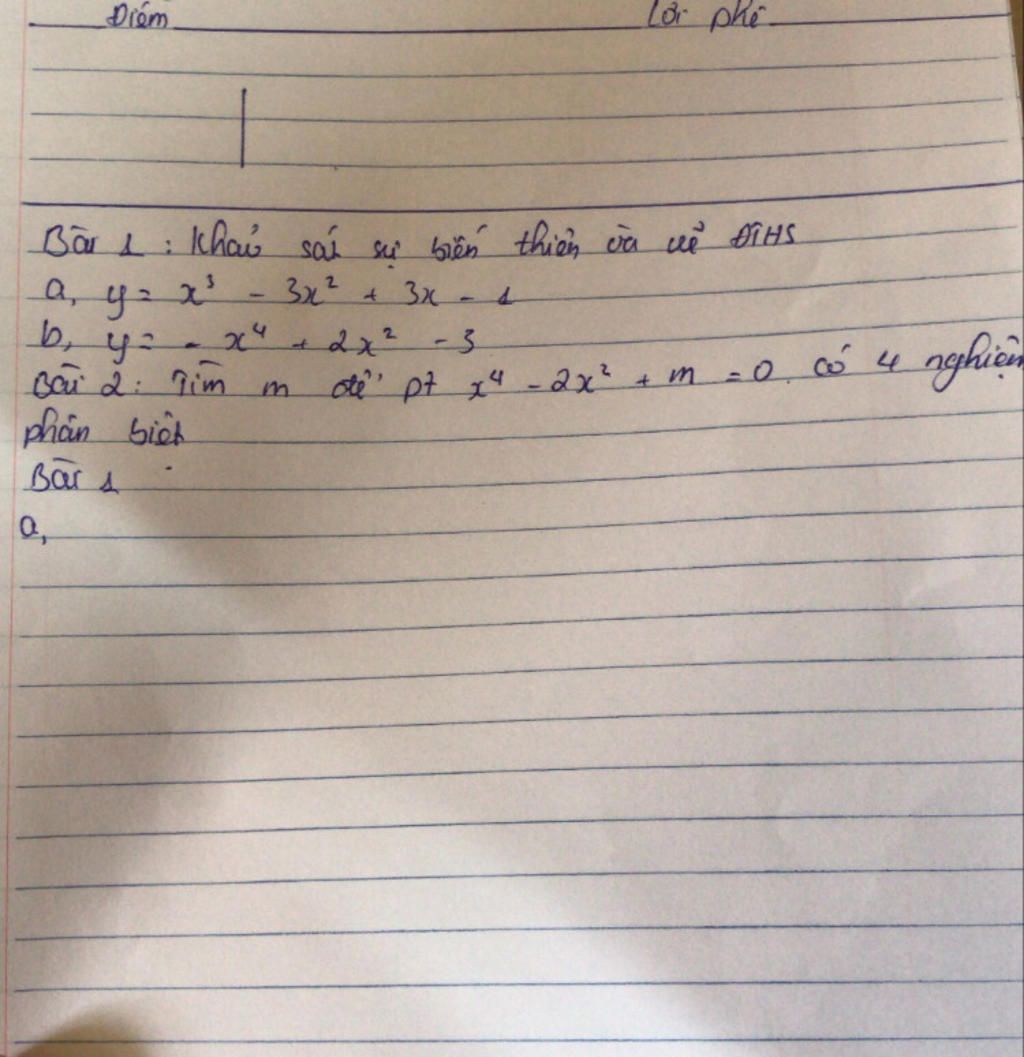 Điểm Lời phê
Bài 1 : Khảo sát sự biến thiên và vẽ ĐTHS
a, y = x³ - 3x² + 3x - 1
b, y = - x⁴ + 2x² - 3
Bài 2 : Tìm m để pt x⁴ - 2x² + m = 0 . có 4 nghiệm
phân biệt
Bài 1
a,